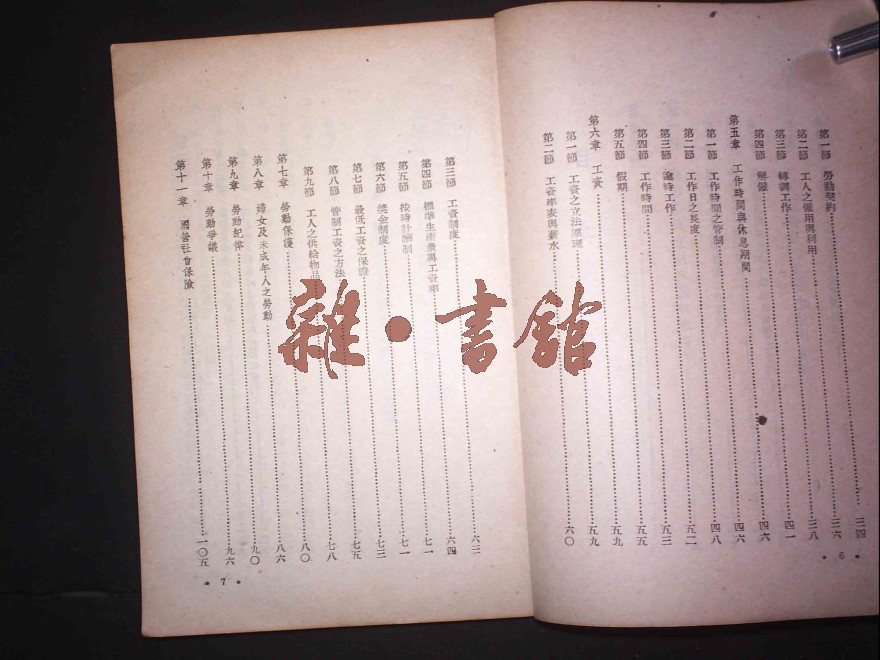 第一節 勞動契約……三四
第二節 工人之僱用與利用……三六
第三節 轉調工作……三八
第四節 解僱……四一
第五章 工作時間與休息期間……四六
第一節 工作時間之管制……四六
第二節 工作日之長度……四八
第三節 逾時工作……五二
第四節 工作時間……五三
第五節 假期……五五
第六章 工資……五九
第一節 工資之立法原理……五九
第二節 工資率表與薪水……六〇
• 6 •
第三節 工資制度……六三
第四節 標準生產量與工資率……六四
第五節 按時計酬制……七一
第六節 獎金制度……七一
第七節 最低工資之保證……七三
第八節 管制工資之方法……七五
第九節 工人之供給物品……七八
第七章 勞動保護……八〇
第八章 婦女及未成年人之勞動……八六
第九章 勞動紀律……九〇
第十章 勞動爭議……九六
第十一章 國營社會保險……一〇五
• 7 •
雜•書館